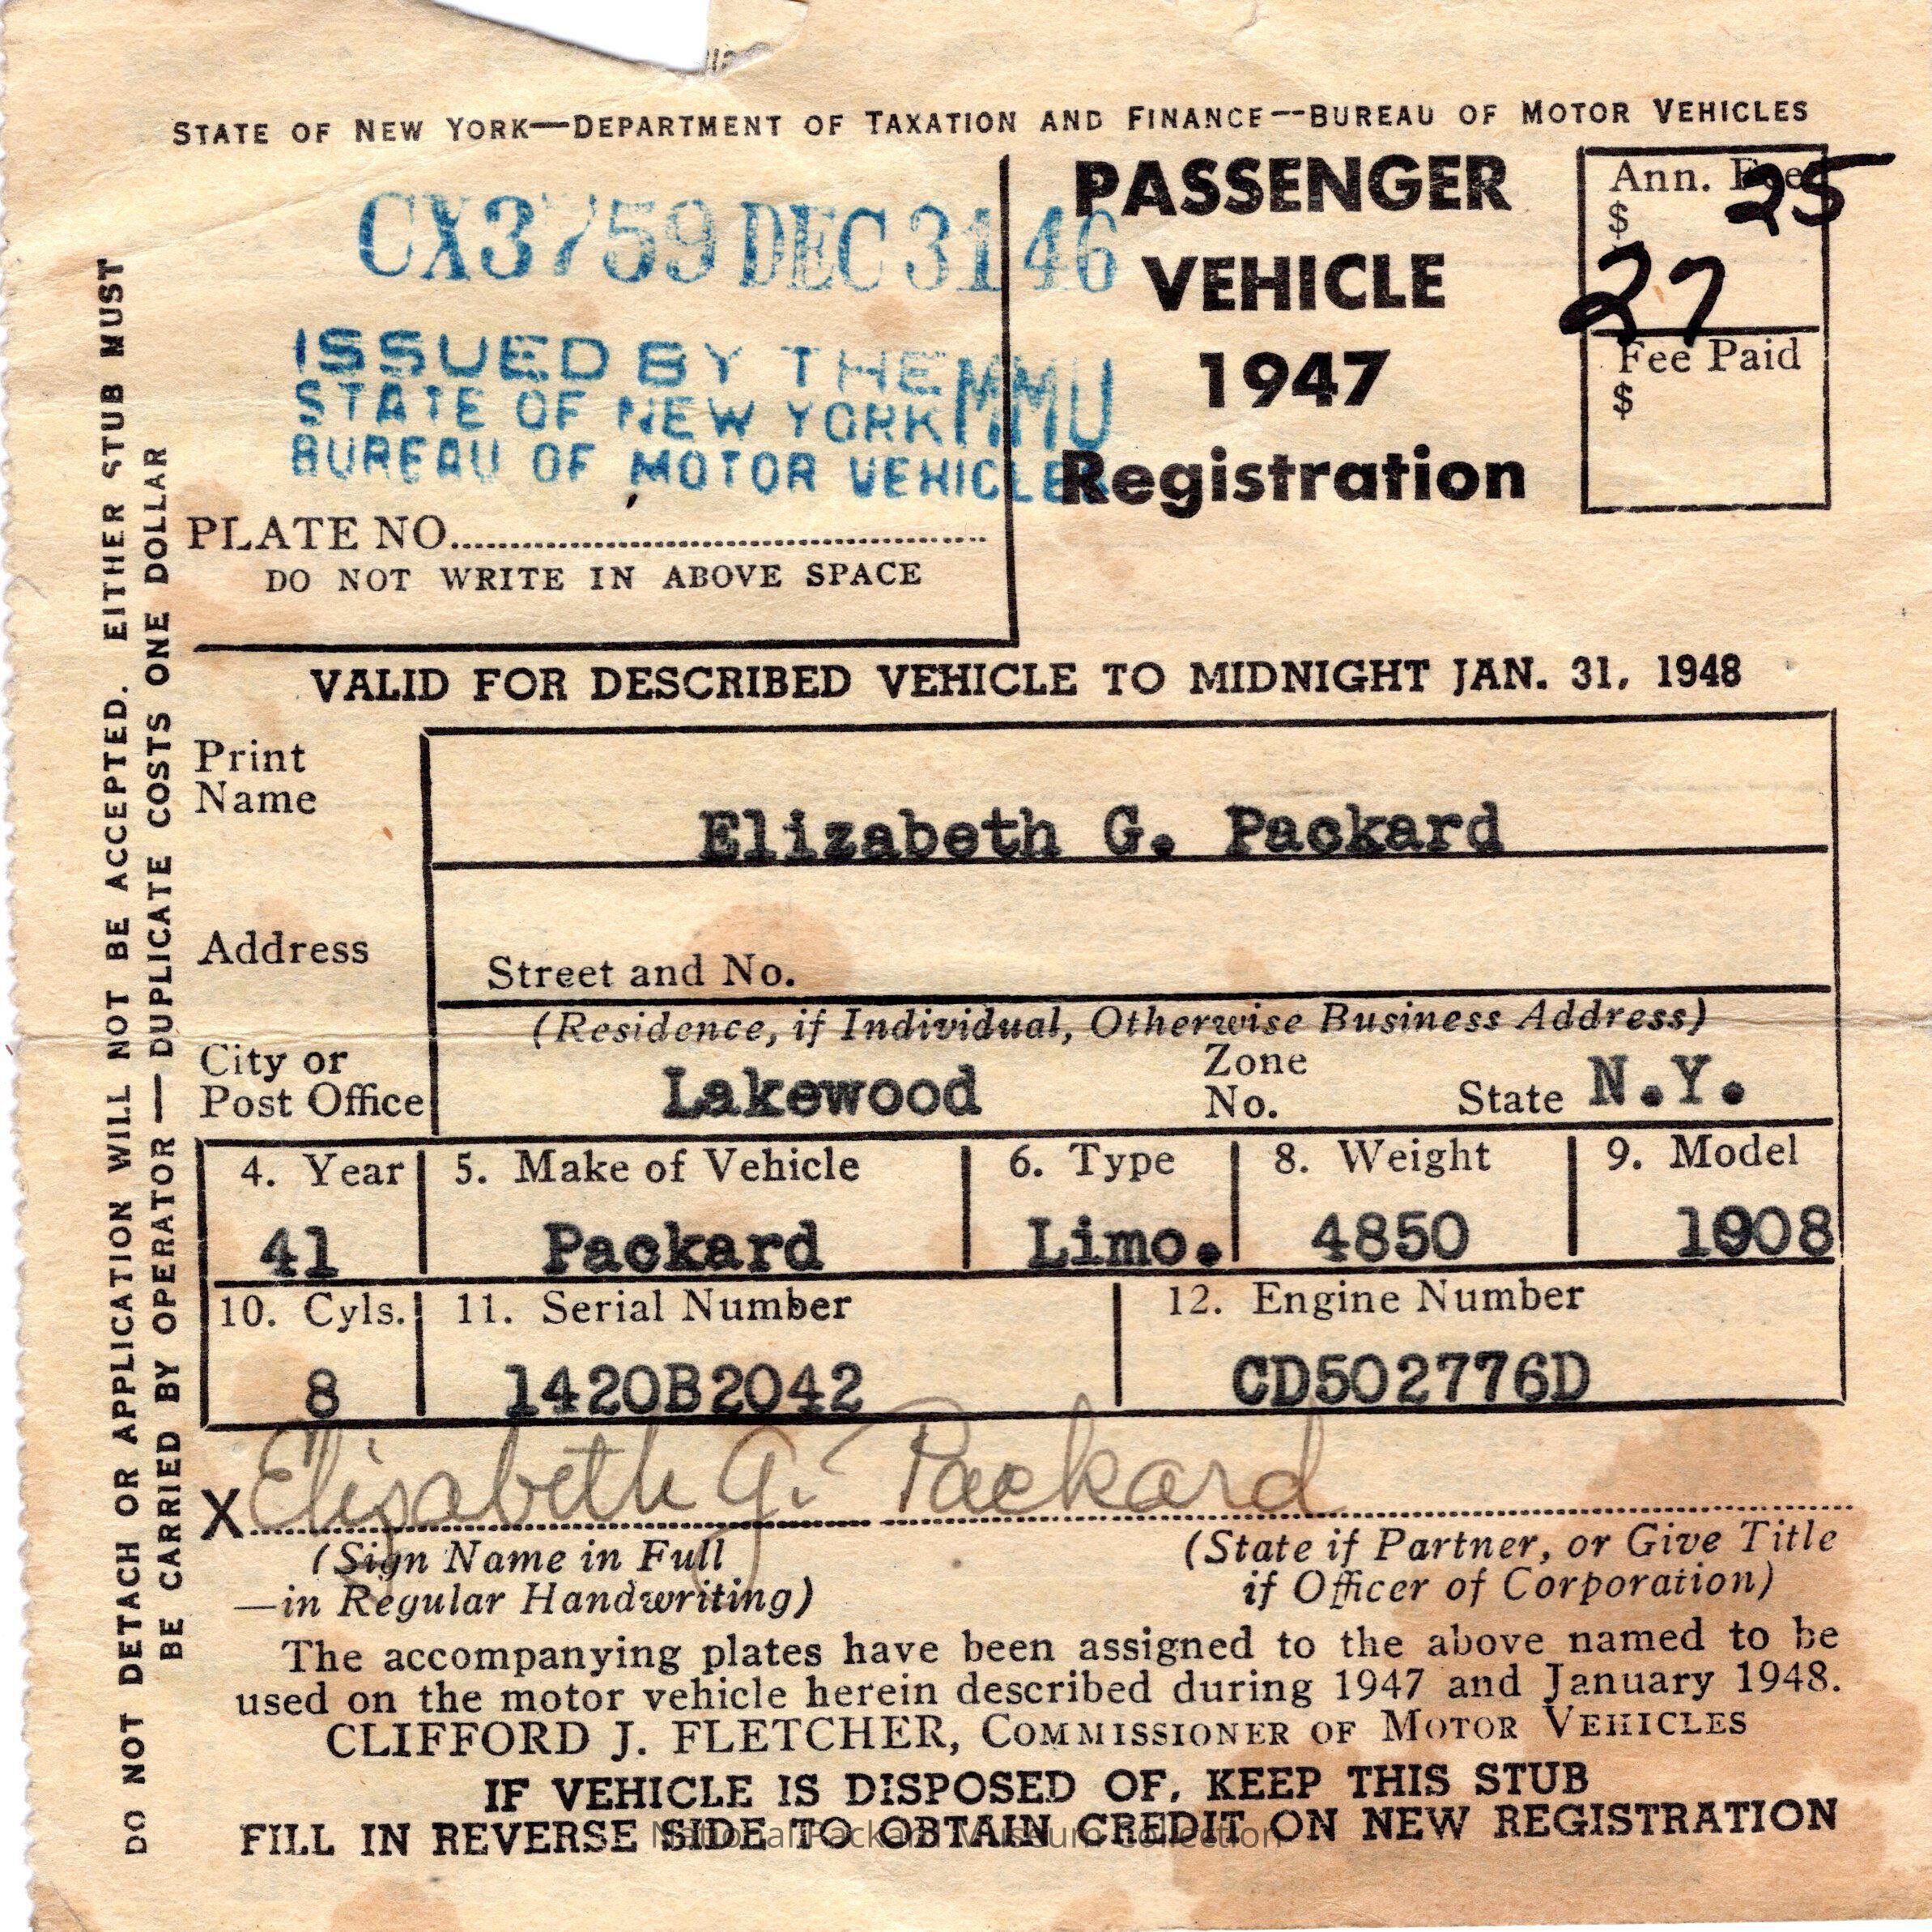 STATE OF NEW YORK—DEPARTMENT OF TAXATION AND FINANCE--BUREAU OF MOTOR VEHICLES
CX3759 DEC 31 46
ISSUED BY THE
STATE OF NEW YORK MMU
BUREAU OF MOTOR VEHICLES
PLATE NO.
DO NOT WRITE IN ABOVE SPACE
PASSENGER
VEHICLE
1947
Registration
Ann. Fee
$ 25
27
Fee Paid
$
VALID FOR DESCRIBED VEHICLE TO MIDNIGHT JAN. 31, 1948
Print
Name
Elizabeth G. Packard
Address
Street and No.
(Residence, if Individual, Otherwise Business Address)
City or
Post Office
Lakewood
Zone
No.
State N.Y.
4. Year 5. Make of Vehicle 6. Type 8. Weight 9. Model
41 Packard Limo. 4850 1908
10. Cyls. 11. Serial Number 12. Engine Number
8 1420B2042 CD502776D
X Elizabeth G. Packard
(Sign Name in Full
—in Regular Handwriting)
(State if Partner, or Give Title
if Officer of Corporation)
The accompanying plates have been assigned to the above named to be
used on the motor vehicle herein described during 1947 and January 1948.
CLIFFORD J. FLETCHER, COMMISSIONER OF MOTOR VEHICLES
IF VEHICLE IS DISPOSED OF, KEEP THIS STUB
FILL IN REVERSE SIDE TO OBTAIN CREDIT ON NEW REGISTRATION
National Packard Museum Collection
DO NOT DETACH OR APPLICATION WILL NOT BE ACCEPTED. EITHER STUB MUST
BE CARRIED BY OPERATOR — DUPLICATE COSTS ONE DOLLAR